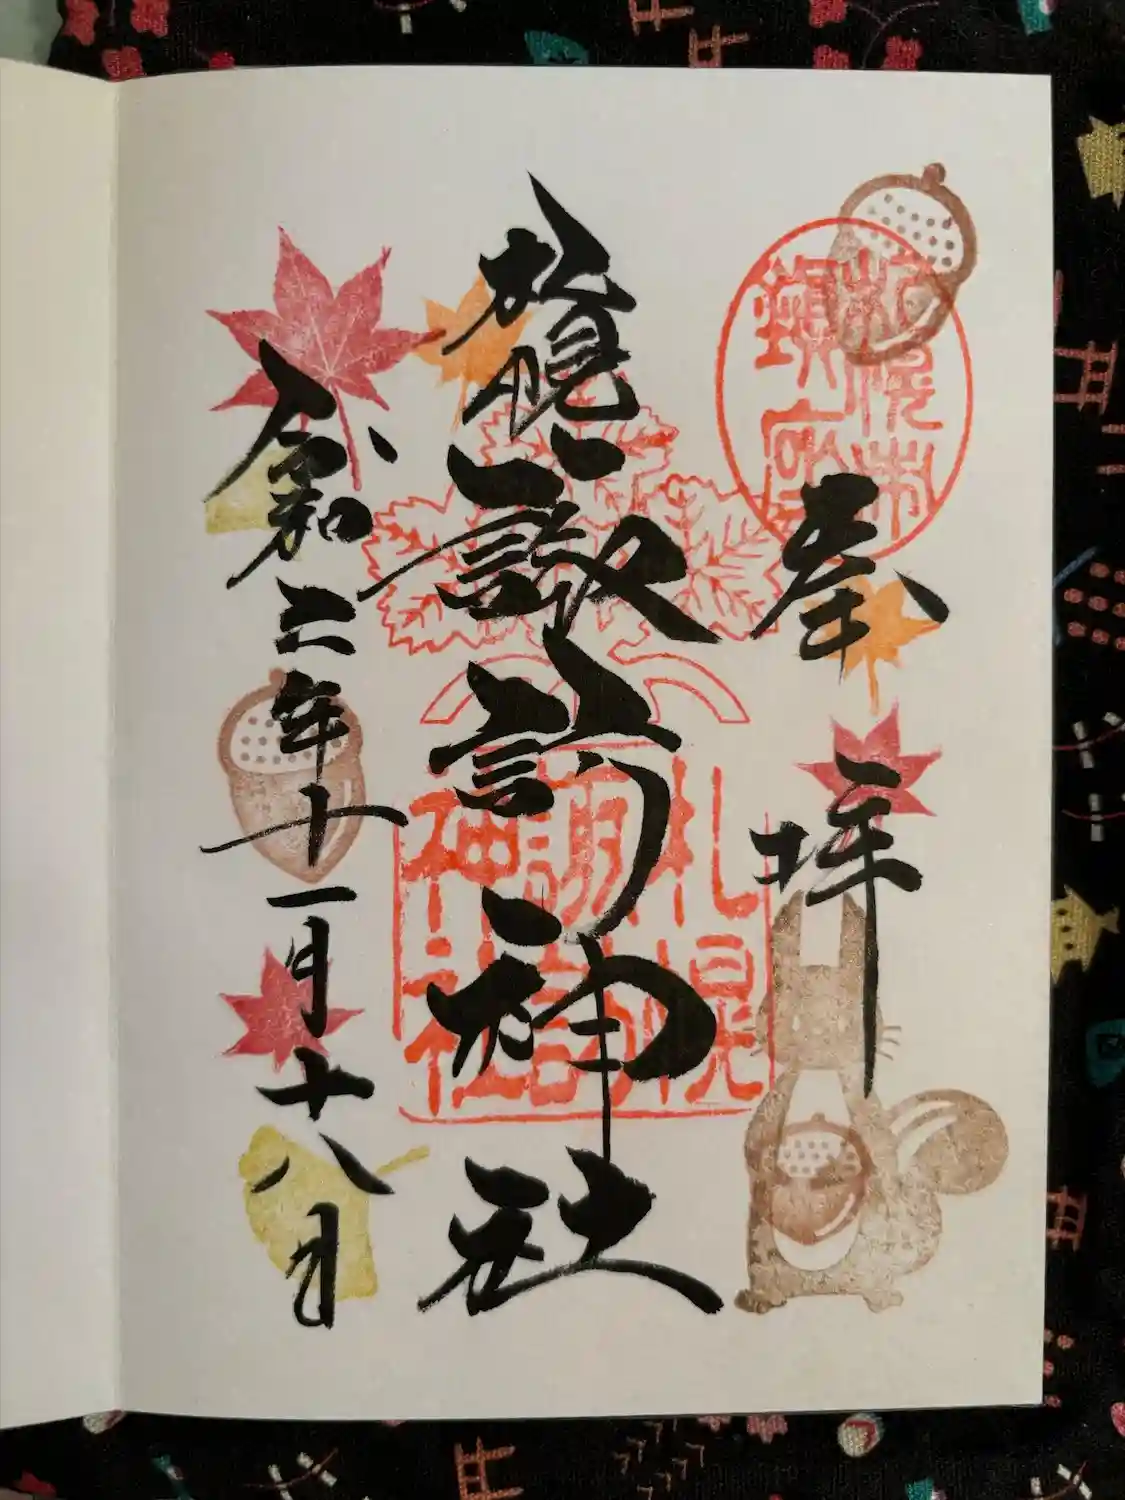 札幌市
鎮座
奉拝
札幌諏訪神社
札幌
諏訪
神社
令和二年十一月十八日